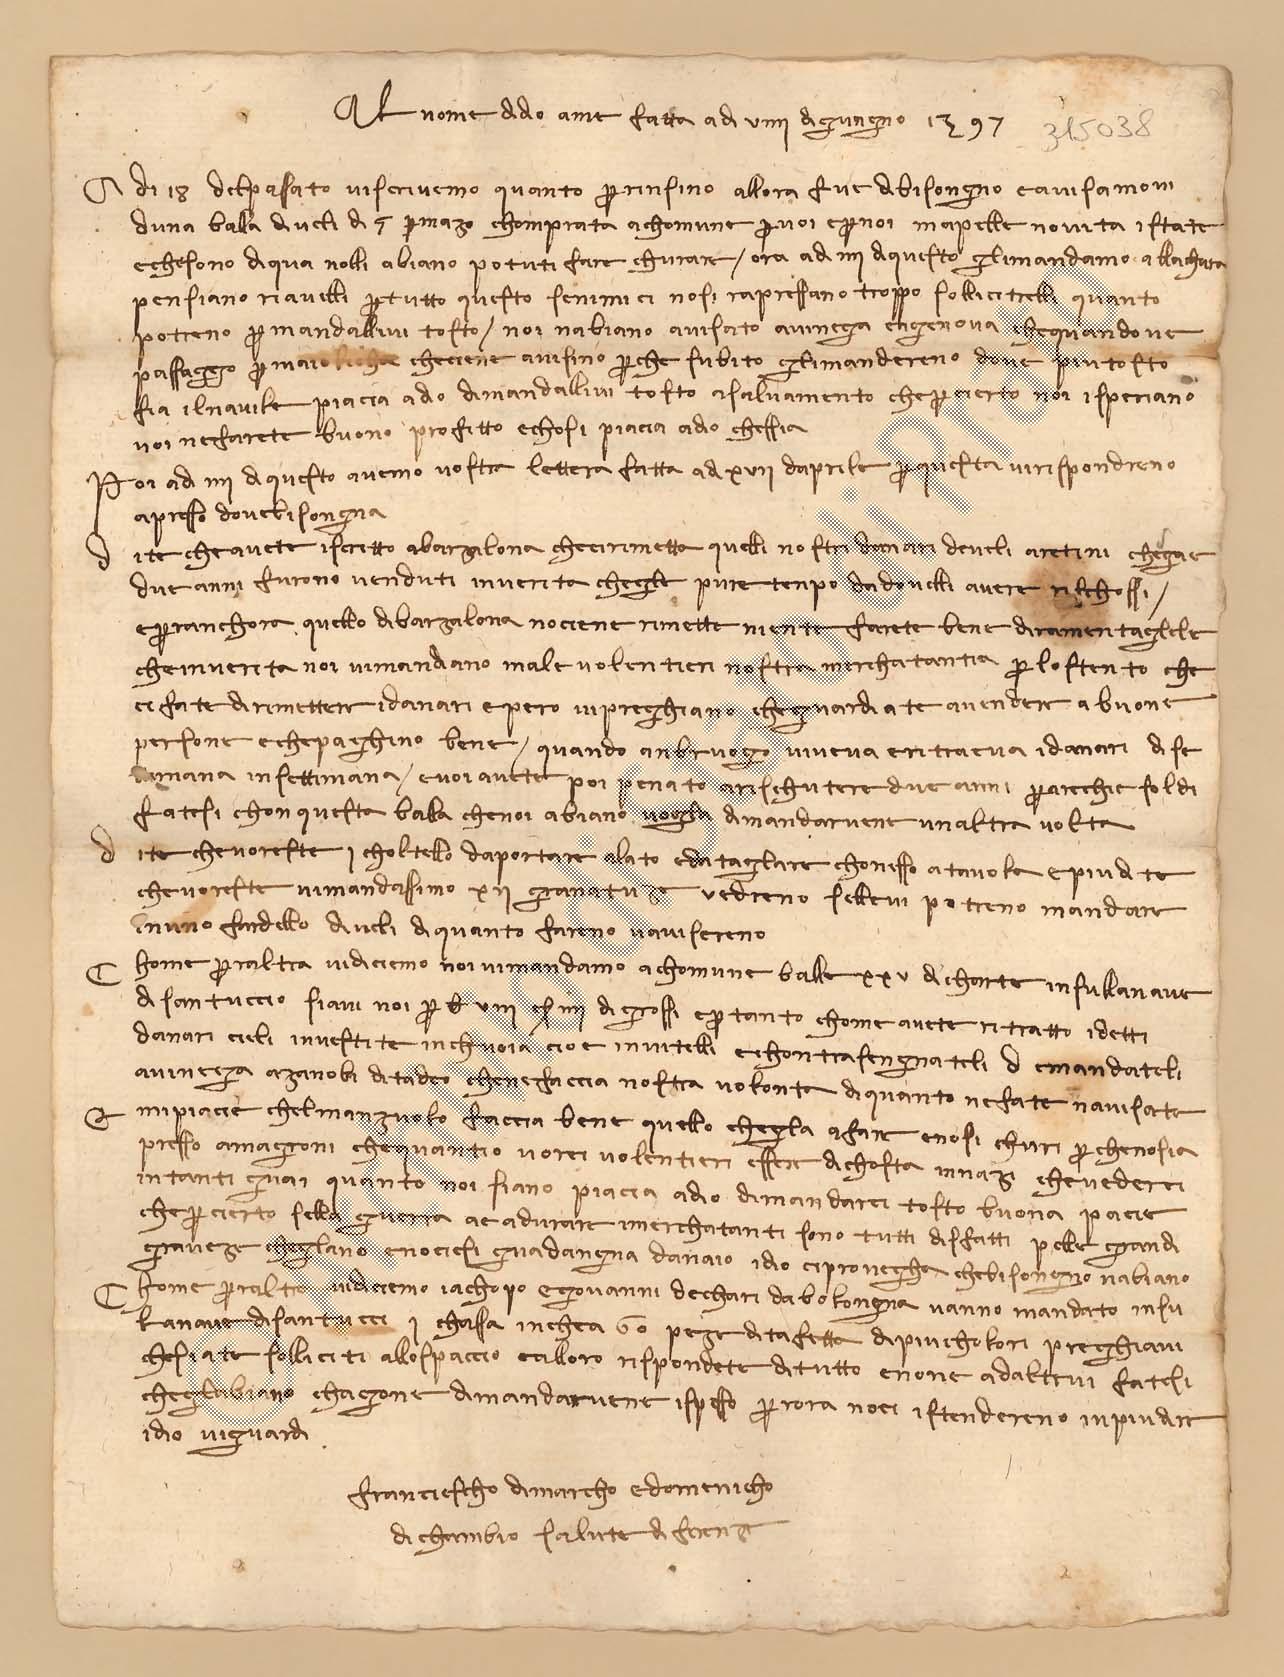 Al nome di dio ame fatta adi viiii digungno 1397
315038
A di 18 delpassato viscrivemo quanto per insino allora fue dibisongno e avisamovi
duna balla diveli di 5 per mazo chomprata a chomune per voi e per noi ma pelle novita istate
e che sono diqua nolli abiano potuti fare churare / ora adi iiii diquesto glimandamo alla chura
pensiano riavelli per tutto questo se nimici nosi rapressano troppo sollicitrelli quanto
potreno per mandallivi tosto / noi nabiano avisato a vinegia e a genova che quando ve
passaggo per maiolicha che ciene avisino perche subito glimandereno dove piu tosto
fia ilnavile piacia a dio dimandallivi tosto a salvamento che per cierto noi isperiano
voi ne farete buono profitto e chosi piacia a dio che sia
Poi adi iiii diquesto avemo vostra lettera fatta adi xvii daprile per questa virispondreno
apresso dove bisongna
dite che avete iscritto a barzalona che cirimetta quelli nostri danari de veli aretini che gia e
due anni furono venduti in verita chegle pure tenpo da dovelli avere rischossi /
e per anchora quello di barzalona no ciene rimette niente farete bene diramentaglele
che in verita noi vi mandiano male volentieri nostra merchatantia per lo stento che
ci fate di rimettere i danari e pero vi preghiano che guardiate a vendere a buone
persone e che paghino bene / quando anbruogio viveva e ritraeva i danari di se
timana in settimana / e voi avete poi penato a rischutere due anni parechie soldi
fatesi chon questa balla che noi abiano voglia di mandarvene unaltra volta
dite che vorreste i choltello da portare alato e da taglare chon esso a tavola e piu dite
che vorreste vi mandassimo xii granatuze vedreno sellevi potreno mandare
in uno fardello di veli di quanto fareno navisereno
Chome per altra vi diciemo noi vi mandamo a chomune balle xxv di charte in sulla nave
di santuccio sianvi noi per lb viii s iiii di grossi e per tanto chome avete ritratto i detti
danari cieli investite in chuoia cioe in vitelli e chontrasengnateli d e mandateli
a vinegia a zanobi di tadeo che ne faccia nostra volonta di quanto ne fate navisate
E mi piacie chel manzuolo faccia bene quello chegla a fare e nosi churi perche nosia
presso a magroni che quant io vorei volentieri essere di chosta innazi che vederci
in tanti guai quanto noi siano piacia a dio di mandarci tosto buona pacie
che per cierto sella guerra ae a durare i merchatanti sono tutti disfatti pelle grandi
graveze cheglano e nocisi guadangna danaio idio ci provegha che bisongno nabiano
Chome per altra vi diciemo iachopo e giovanni de chari da bolongna vanno mandato in su
la nave di santucci i chassa inchea 60 peze di tafetta di piu cholori preghianvi
che siate solliciti allo spaccio e alloro rispondete di tutto e none ad altrui fatesi
cheglabiano chagione di mandarvene ispesso per ora noci istendereno in piu dire
idio vi guardi
franciescho dimarcho e domenicho
di chambio salute di firenze